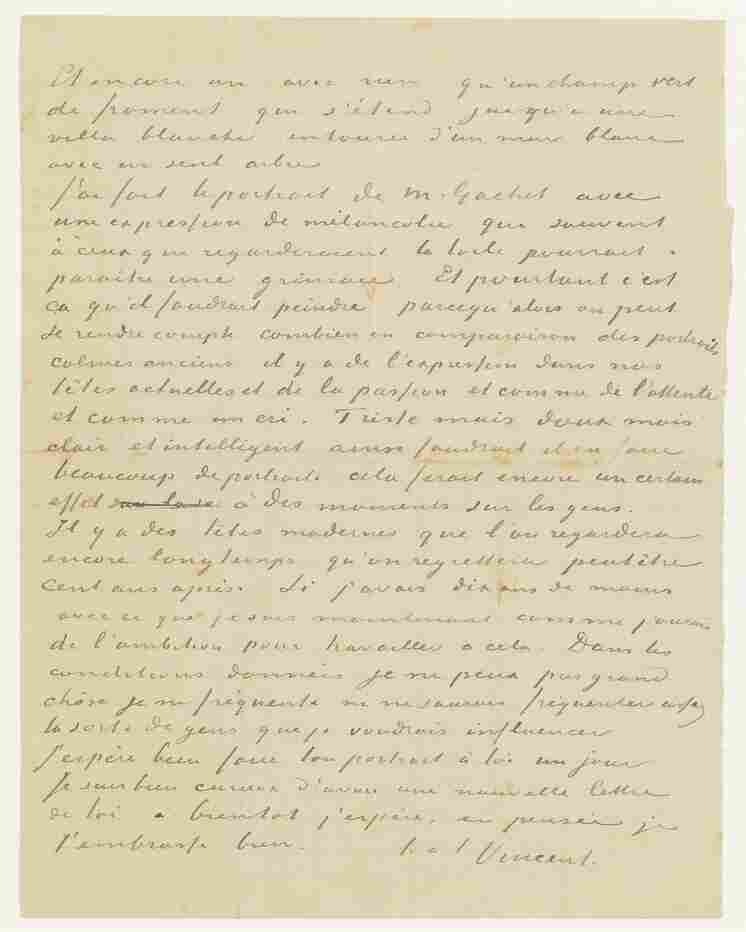 Et encore un avec rien qu'un champ vert
de froment qui s'étend jusqu'a une
villa blanche entourée d'un mur blanc
avec un seul arbre
J'ai fait le portrait de M. Gachet avec
une expression de mélancolie qui souvent
à ceux qui regarderaient la toile pourrait
paraître une grimace. Et pourtant c'est
ça qu'il faudrait peindre parcequ'alors on peut
se rendre compte combien en comparaison des portraits
calmes anciens il y a de l'expression dans nos
têtes actuelles et de la passion et comme de l'attente
et comme un cri. Triste mais doux mais
clair et intelligent ainsi faudrait il en faire
beaucoup de portraits cela ferait encore un certain
effet à des moments sur les gens.
Il y a des têtes modernes que l'on regardera
encore longtemps qu'on regrettera peutêtre
cent ans après. Si j'avais dix ans de moins
avec ce que je sais maintenant comme j'aurais
de l'ambition pour travailler à cela. Dans les
conditions données je ne peux pas grand
chôse je ne fréquente ni ne saurais fréquenter assez
la sorte de gens que je voudrais influencer
J'espère bien faire ton portrait à toi un jour
Je suis bien curieux d'avoir une nouvelle lettre
de toi a bientot j'espère, en pensée je
t'embrasse bien. t. à t. Vincent.